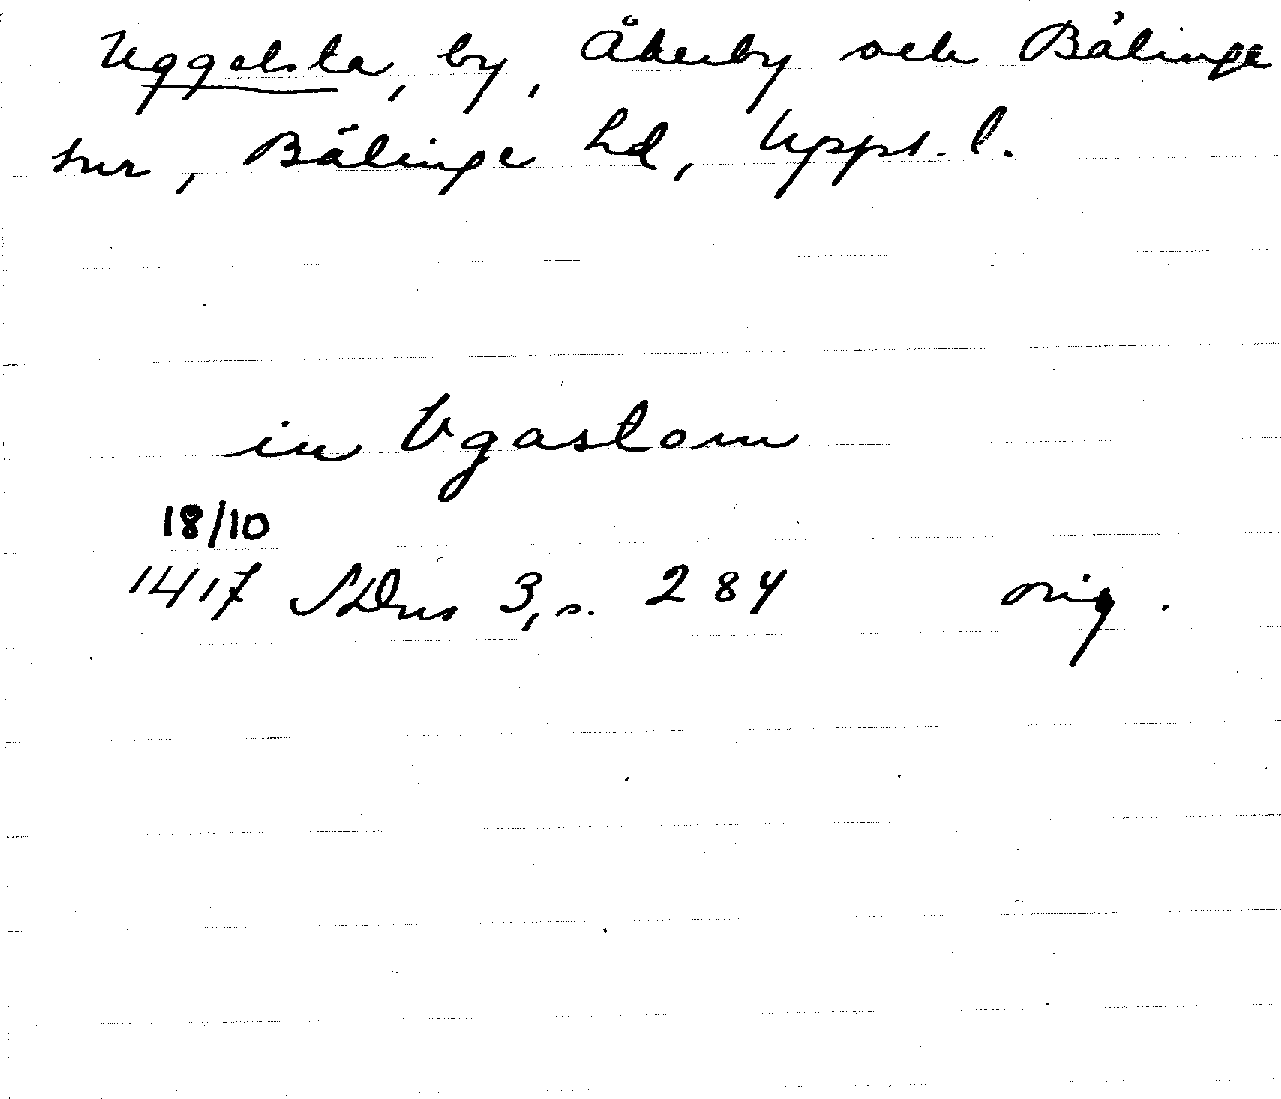 Uggelsta, by, Åkerby och Bälinge
snr, Bälinge hd, Upps. l.
in Vgastom
18/10
1417 SDns 3, s. 284 orig.